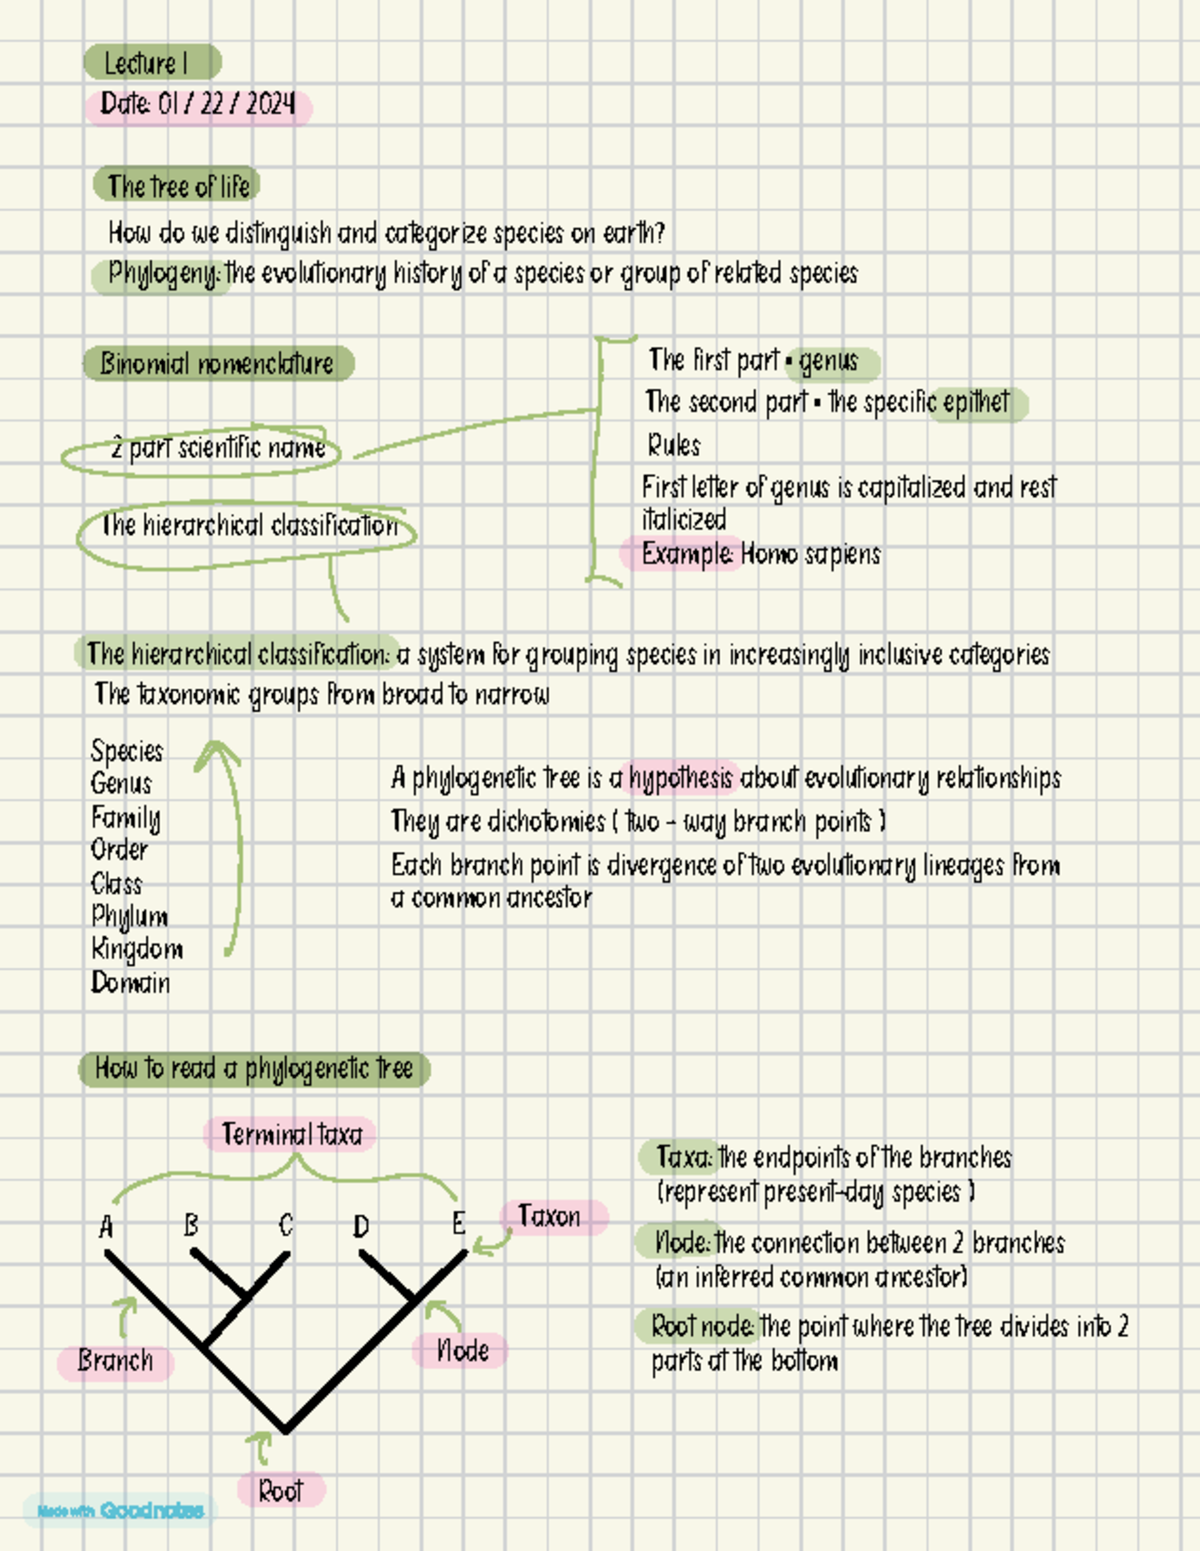 Lecture 1
Date: 01 / 22 / 2024
The tree of life
How do we distinguish and categorize species on earth?
Phylogeny: the evolutionary history of a species or group of related species
Binomial nomenclature
2 part scientific name
The hierarchical classification
The first part • genus
The second part • the specific epithet
Rules
First letter of genus is capitalized and rest
italicized
Example: Homo sapiens
The hierarchical classification: a system for grouping species in increasingly inclusive categories
The taxonomic groups from broad to narrow
Species
Genus
Family
Order
Class
Phylum
Kingdom
Domain
A phylogenetic tree is a hypothesis about evolutionary relationships
They are dichotomies ( two - way branch points )
Each branch point is divergence of two evolutionary lineages from
a common ancestor
How to read a phylogenetic tree
Terminal taxa
A B C D E
Taxon
Branch
Node
Root
Taxa: the endpoints of the branches
(represent present-day species )
Node: the connection between 2 branches
(an inferred common ancestor)
Root node: the point where the tree divides into 2
parts at the bottom
Made with Goodnotes